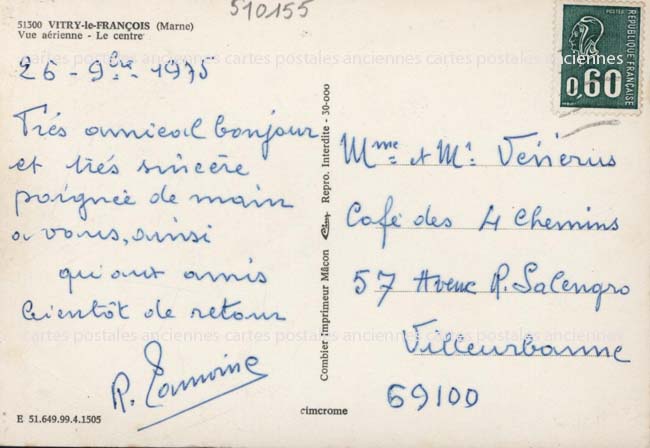 510155
51300 VITRY-le-FRANÇOIS (Marne)
Vue aérienne - Le centre
26 - 9bre - 1975
Très amical bonjour
et très sincère
poignée de main
a vous, ainsi
qu'aux amis
bientôt de retour
R.
E 51.649.99.4.1505
Combier Imprimeur Mâcon Repro. Interdite - 30-000
cimcrome
POSTES
RÉPUBLIQUE FRANÇAISE
0,60
Mme et Mr
Café des 4 Chemins
57 Avenue R. Salengro
Villeurbanne
69100
cartes postales anciennes cartes postales anciennes cartes postales anciennes
cartes postales anciennes cartes postales anciennes cartes postales anciennes